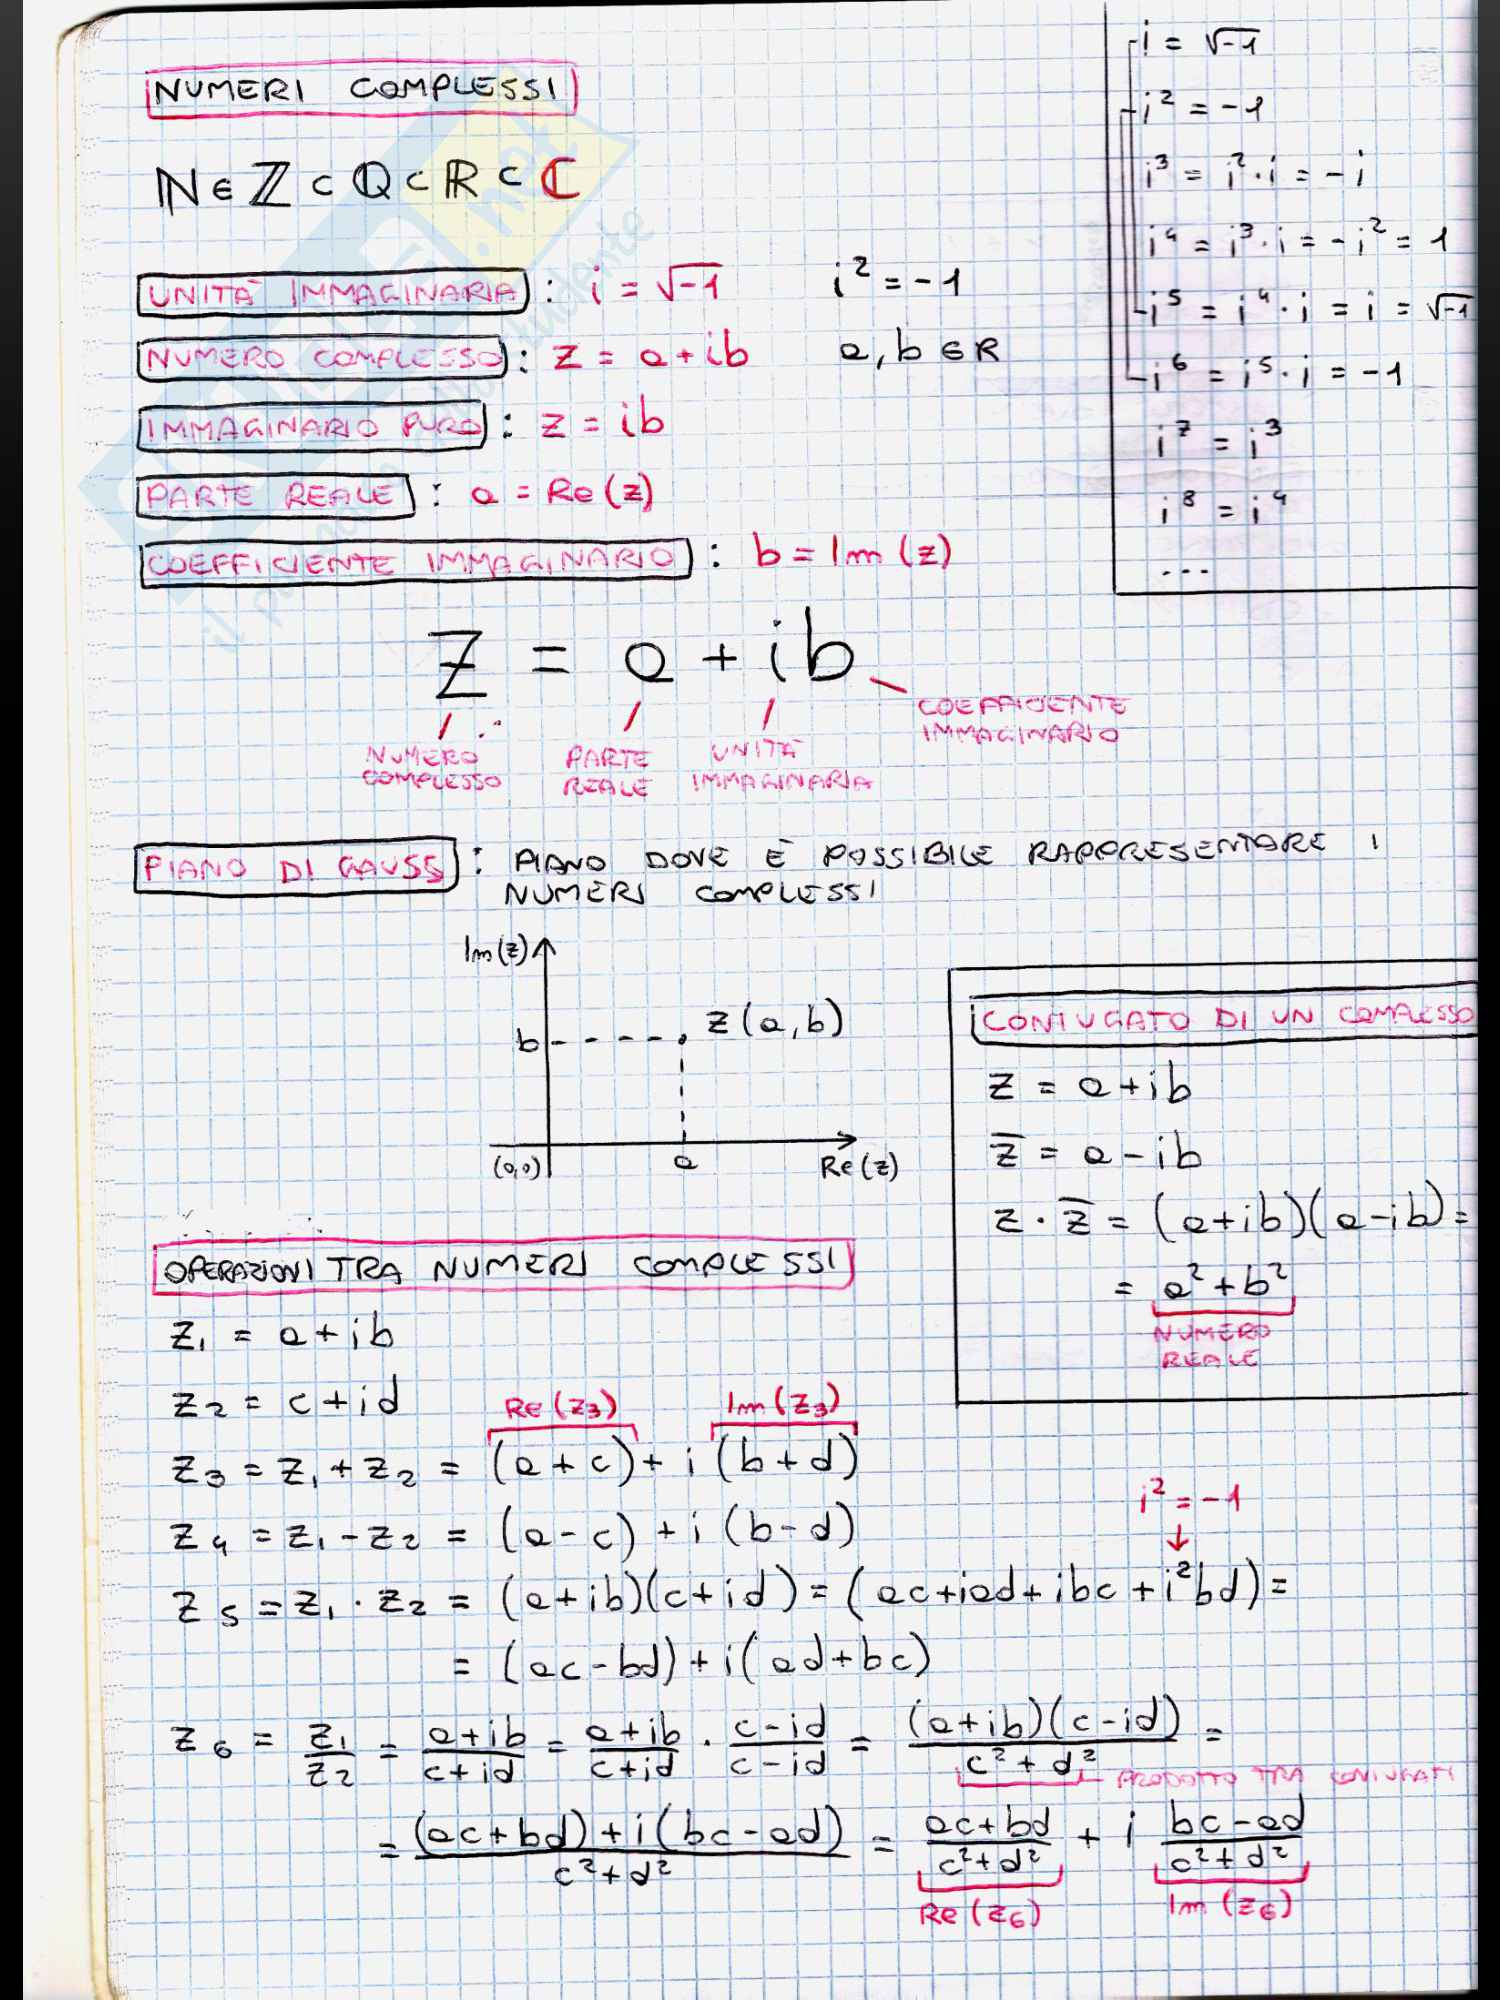 NUMERI COMPLESSI
ℕ ∈ ℤ ⊂ ℚ ⊂ ℝ ⊂ ℂ
UNITÀ IMMAGINARIA : i = √-1 i² = -1
NUMERO COMPLESSO : z = a + ib a, b ∈ R
IMMAGINARIO PURO : z = ib
PARTE REALE : a = Re(z)
COEFFICIENTE IMMAGINARIO : b = Im(z)
i = √-1
i² = -1
i³ = i²·i = -i
i⁴ = i³·i = -i² = 1
i⁵ = i⁴·i = i = √-1
i⁶ = i⁵·i = -1
i⁷ = i³
i⁸ = i⁴
...
z = a + ib
NUMERO COMPLESSO
PARTE REALE
UNITÀ IMMAGINARIA
COEFFICIENTE IMMAGINARIO
PIANO DI GAUSS : PIANO DOVE È POSSIBILE RAPPRESENTARE I
NUMERI COMPLESSI
Im(z)
b
z(a,b)
(0,0)
a
Re(z)
CONIUGATO DI UN COMPLESSO
z = a + ib
z̅ = a - ib
z · z̅ = (a+ib)(a-ib) =
= a² + b²
NUMERO
REALE
OPERAZIONI TRA NUMERI COMPLESSI
z₁ = a + ib
z₂ = c + id
Re(z₃) Im(z₃)
z₃ = z₁ + z₂ = (a+c) + i(b+d)
z₄ = z₁ - z₂ = (a-c) + i(b-d)
i² = -1
↓
z₅ = z₁ · z₂ = (a+ib)(c+id) = (ac+iad+ibc+i²bd) =
= (ac-bd) + i(ad+bc)
z₆ = z₁/z₂ = (a+ib)/(c+id) = (a+ib)/(c+id) · (c-id)/(c-id) = (a+ib)(c-id)/(c²+d²) =
PRODOTTO TRA CONIUGATI
= ((ac+bd)+i(bc-ad))/(c²+d²) = (ac+bd)/(c²+d²) + i (bc-ad)/(c²+d²)
Re(z₆) Im(z₆)